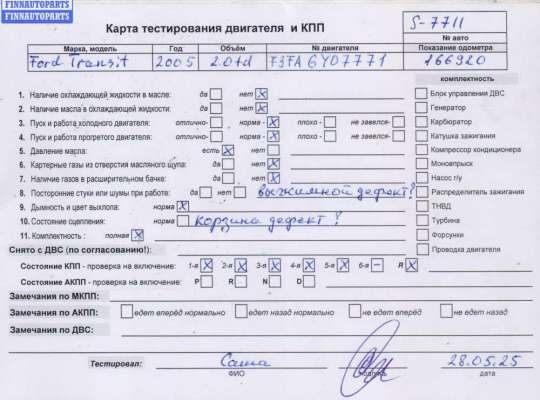 FINNAUTOPARTS
FINNAUTOPARTS
FINNAUTOPARTS
Карта тестирования двигателя и КПП
S-7711
№ авто
Марка, модель Год Объём № двигателя Показание одометра
Ford Transit 2005 2.0td F3FA 6Y07771 166920
комплектность
1. Наличие охлаждающей жидкости в масле: да нет X
2. Наличие масла в охлаждающей жидкости: да нет X
3. Пуск и работа холодного двигателя: отлично- норма - X плохо - не завелся-
4. Пуск и работа прогретого двигателя: отлично- норма - X плохо - не завелся-
5. Давление масла: есть X нет
6. Картерные газы из отверстия масляного щупа: да нет X
7. Наличие газов в расширительном бачке: да нет X
8. Посторонние стуки или шумы при работе: да нет выжимной дефект?
9. Дымность и цвет выхлопа: норма X
10. Состояние сцепления: норма корзина дефект?
11. Комплектность: полная X
Блок управления ДВС
Генератор
Карбюратор
Катушка зажигания
Компрессор кондиционера
Моновпрыск
Насос г/у
Распределитель зажигания
ТНВД
Турбина
Форсунки
Проводка двигателя
Снято с ДВС (по согласованию!):
Состояние КПП - проверка на включение: 1-я X 2-я X 3-я X 4-я X 5-я X 6-я – R X
Состояние АКПП - проверка на включение: P R N D
Замечания по МКПП:
Замечания по АКПП: едет вперёд нормально едет назад нормально не едет вперёд не едет назад
Замечания по ДВС:
Тестировал: Саша 28.05.25
ФИО подпись дата